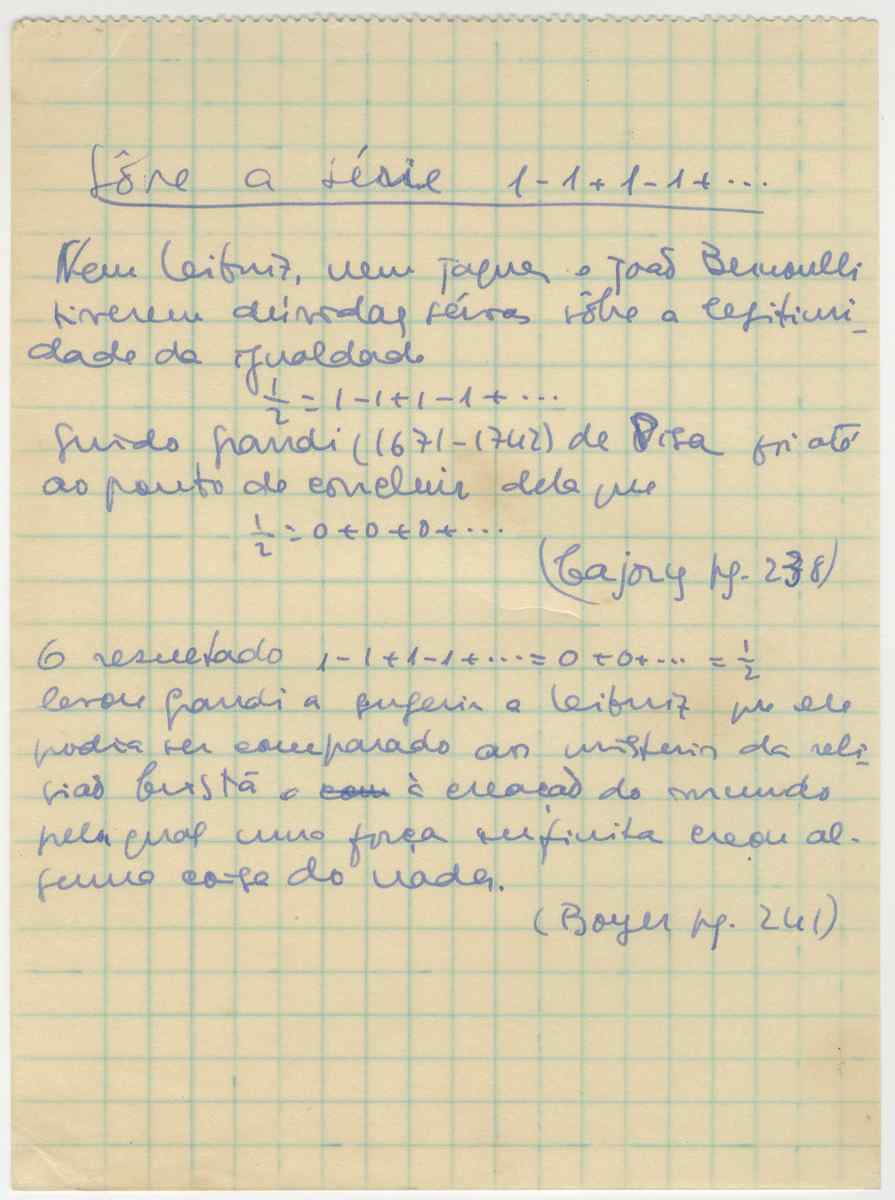 Sôre a série 1-1+1-1+...
Nem Leibniz, nem Jaques e João Bernoulli
tiveram dúvidas sérias sôbre a legitimi-
dade da igualdade
1/2 = 1-1+1-1+...
Guido Grandi (1671-1742) de Pisa foi até
ao ponto de concluir dela que
1/2 = 0+0+0+...
(Cajory pg. 238)
O resultado 1-1+1-1+... = 0+0+... = 1/2
levou Grandi a sugerir a Leibniz que ele
podia ser comparado aos misterios da reli-
gião Cristã e com à creação do mundo
pela qual uma força infinita creou al-
guma coisa do nada.
(Boyer pg. 241)